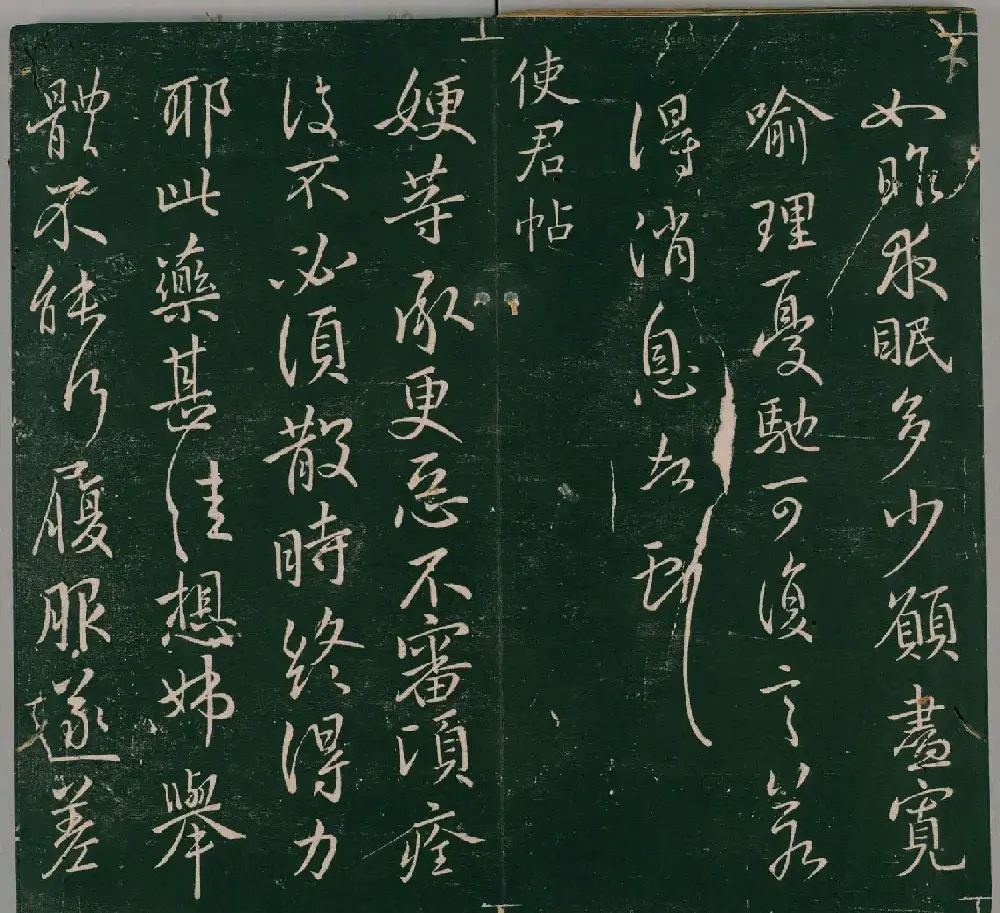 如昨夜眠多少願盡寬
喻理憂馳可復言善
得消息告慰
使君帖
娩等承更惡不審須痊
復不必須散時終得力
耶此藥甚佳想姊舉
體不能行履服遂差